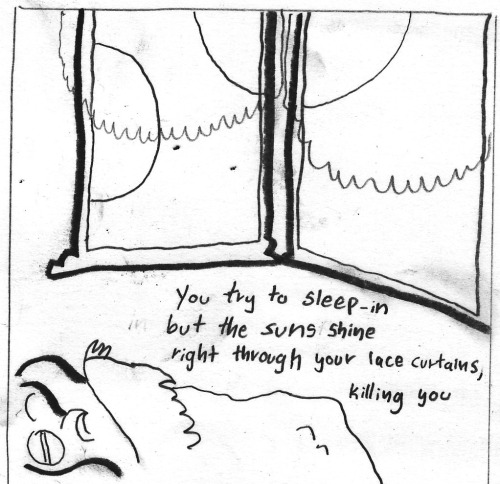 You try to sleep-in
but the suns shine
right through your lace curtains,
killing you